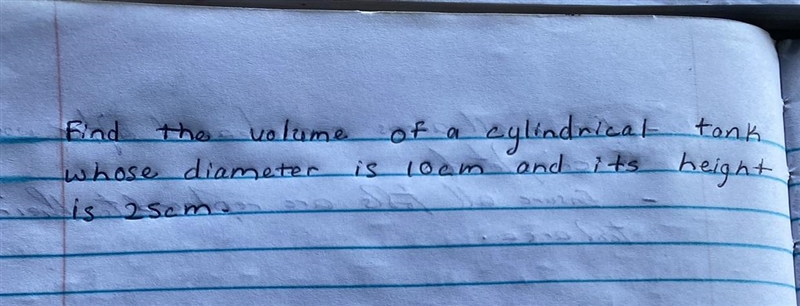 Find the volume of a cylindrical tank
whose diameter is 10cm and its height
is 25cm.